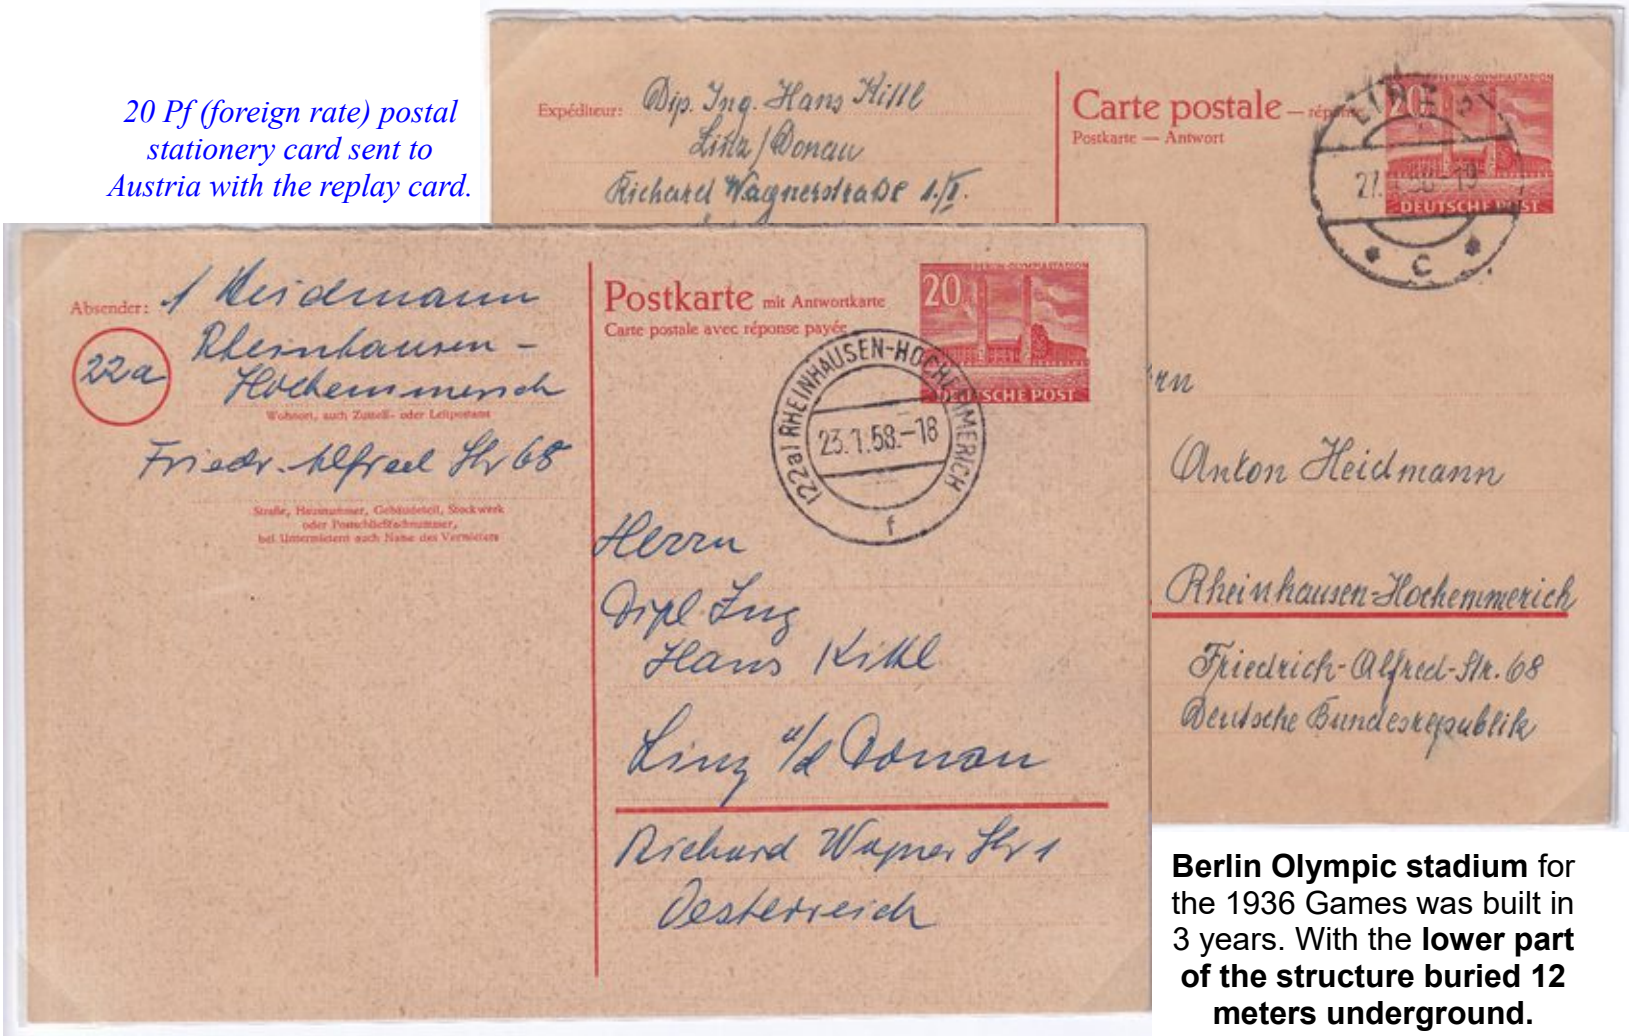 20 Pf (foreign rate) postal
stationery card sent to
Austria with the replay card.
Expéditeur: Dip. Ing. Hans Kittl
Linz/Donau
Richard Wagnerstraße 1./I.
Carte postale — réponse
Postkarte — Antwort
20 BERLIN-OLYMPIASTADION
DEUTSCHE POST
LINZ
27. 19
c
Anton Heidmann
Rheinhausen-Hochemmerich
Friedrich-Alfred-Str. 68
Deutsche Bundesrepublik
Absender: A Heidmann
22a
Rheinhausen-
Hochemmerich
Wohnort, auch Zustell- oder Leitpostamt
Friedr. Alfred Str 68
Straße, Hausnummer, Gebäudeteil, Stockwerk
oder Postschließfachnummer,
bei Untermietern auch Name des Vermieters
Postkarte mit Antwortkarte
Carte postale avec réponse payée
20 BERLIN-OLYMPIASTADION
DEUTSCHE POST
(22a) RHEINHAUSEN-HOCHEMMERICH
23.1.58.-18
f
Herrn
Dipl. Ing
Hans Kittl
Linz a/d Donau
Richard Wagner Str 1
Oesterreich
Berlin Olympic stadium for
the 1936 Games was built in
3 years. With the lower part
of the structure buried 12
meters underground.